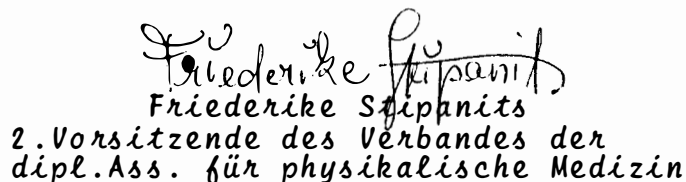 Friederike Stipanits
Friederike Stipanits
2.Vorsitzende des Verbandes der
dipl.Ass. für physikalische Medizin